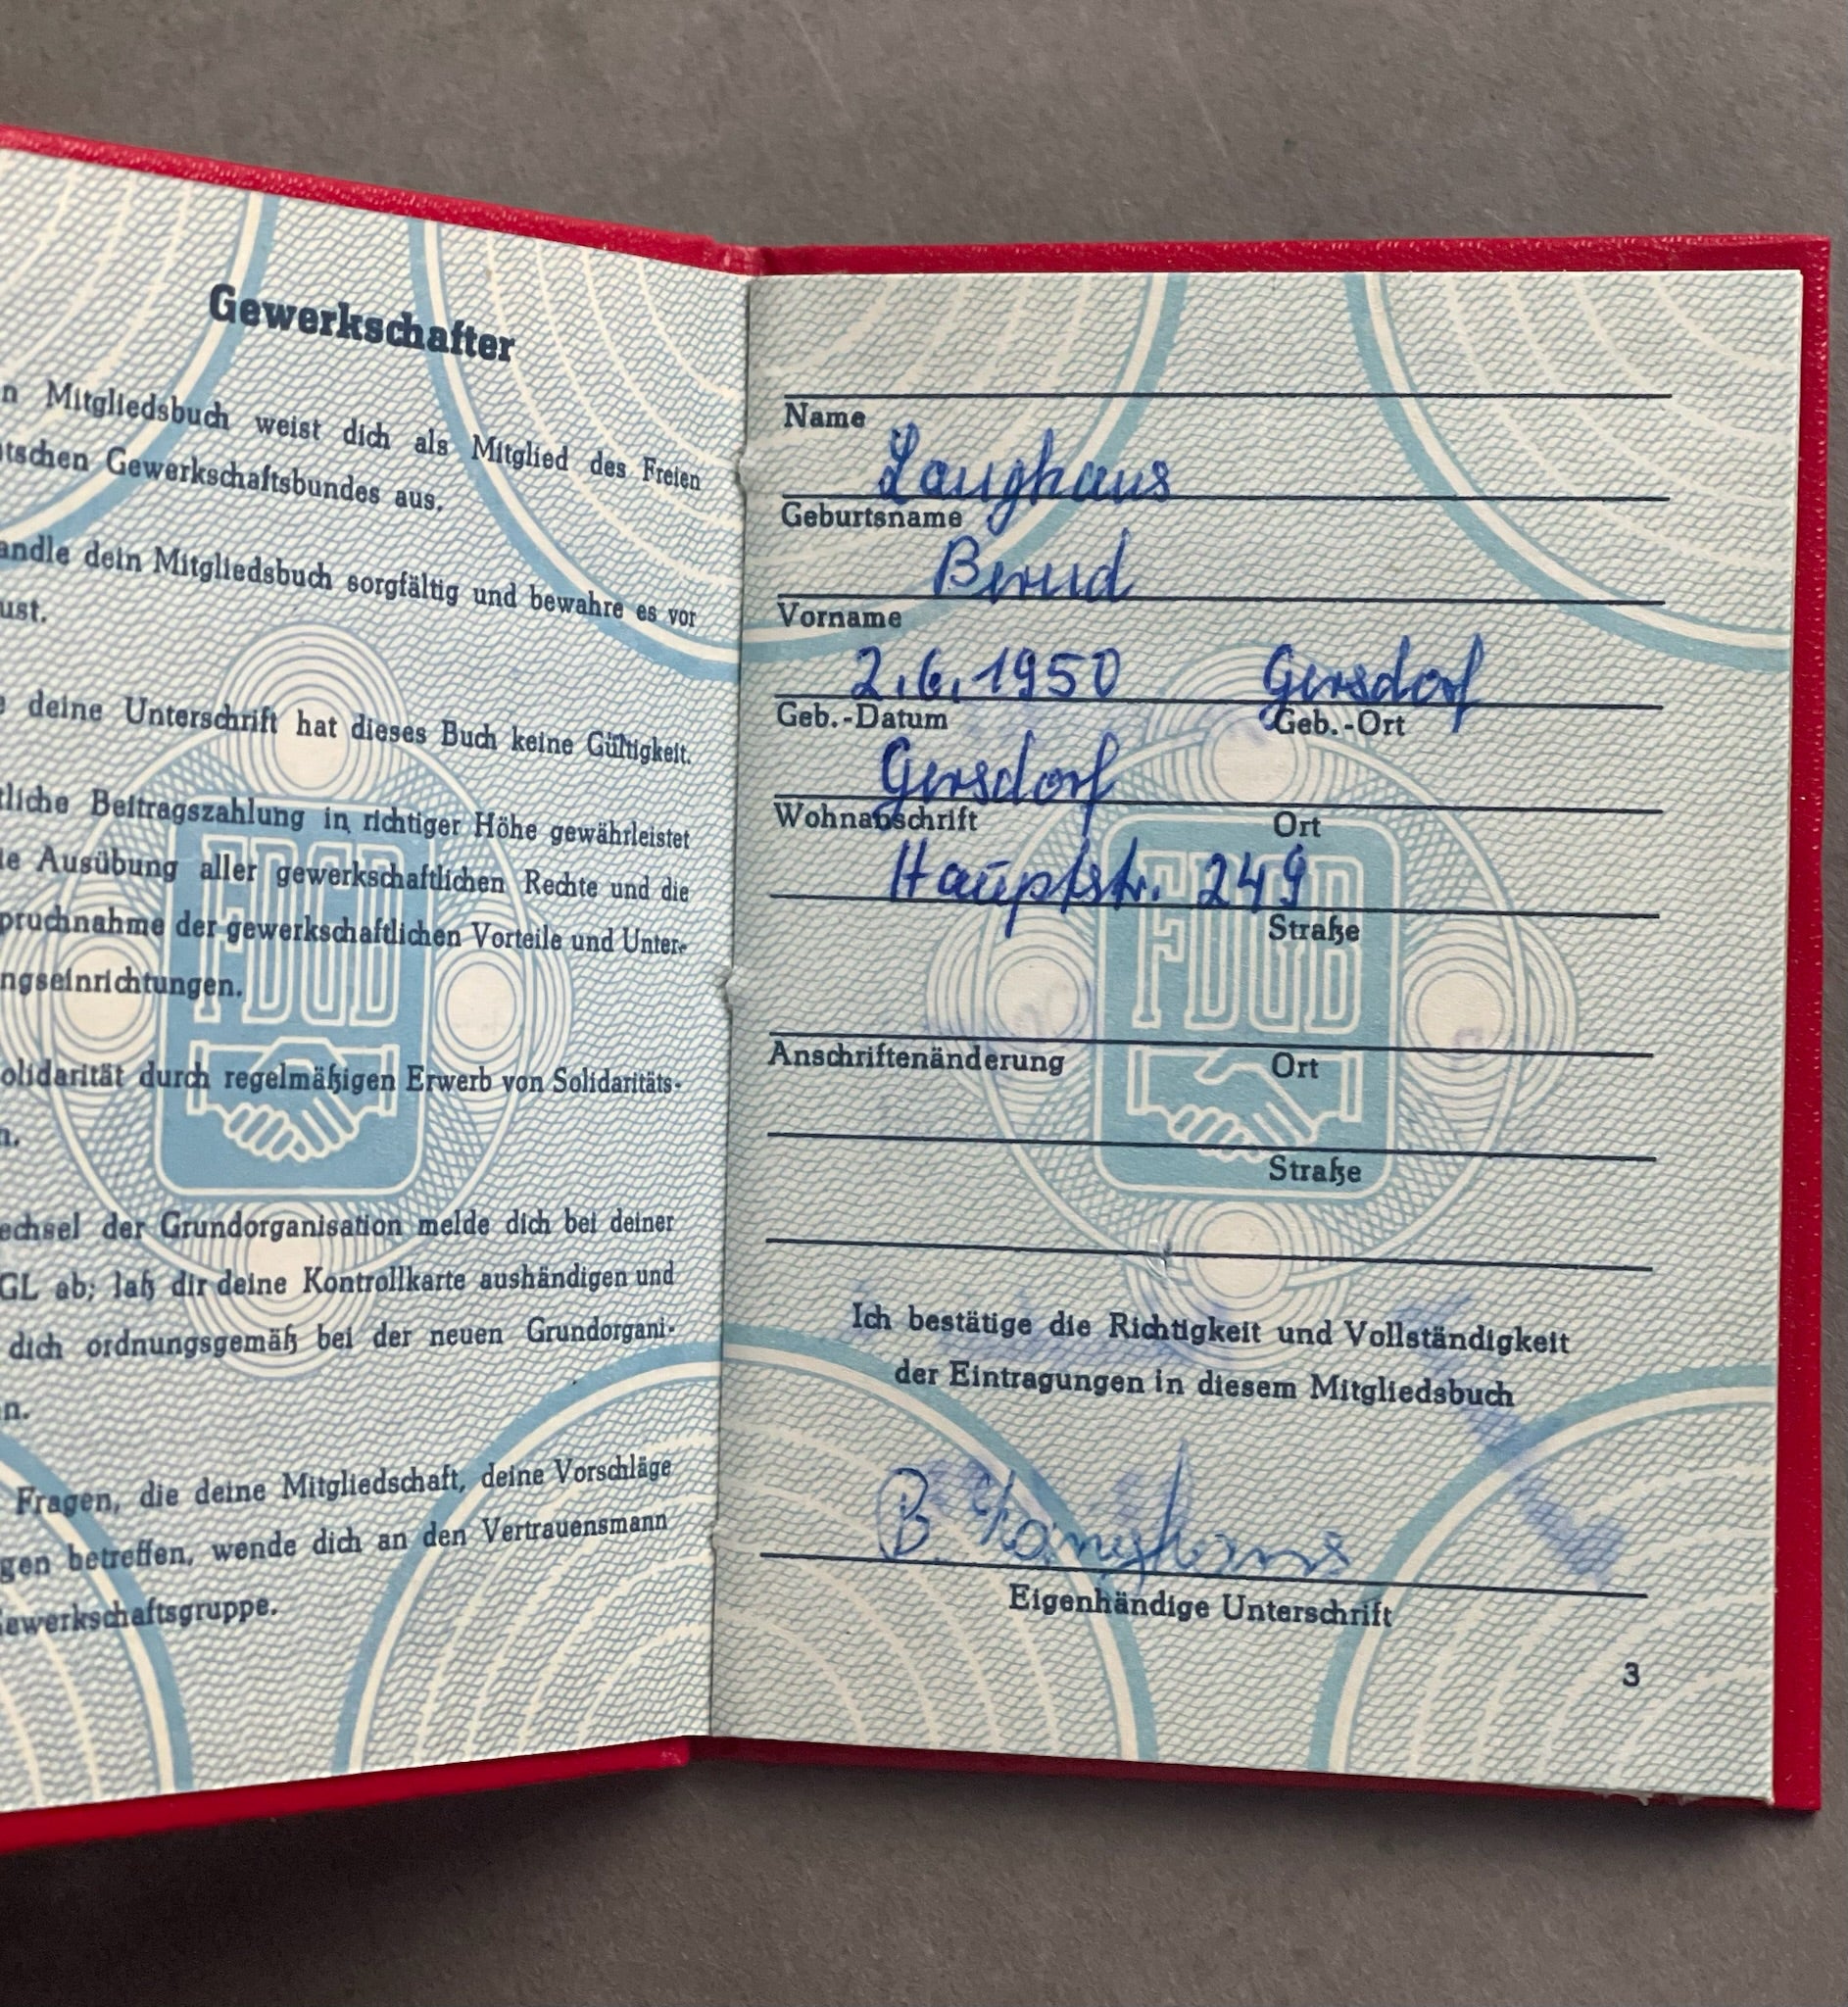 Gewerkschafter
n Mitgliedsbuch weist dich als Mitglied des Freien
tschen Gewerkschaftsbundes aus.
andle dein Mitgliedsbuch sorgfältig und bewahre es vor
ust.
e deine Unterschrift hat dieses Buch keine Gültigkeit.
tliche Beitragszahlung in richtiger Höhe gewährleistet
ie Ausübung aller gewerkschaftlichen Rechte und die
pruchnahme der gewerkschaftlichen Vorteile und Unter-
ngseinrichtungen.
FDGB
olidarität durch regelmäßigen Erwerb von Solidaritäts-
n.
echsel der Grundorganisation melde dich bei deiner
GL ab; laß dir deine Kontrollkarte aushändigen und
dich ordnungsgemäß bei der neuen Grundorgani-
n.
Fragen, die deine Mitgliedschaft, deine Vorschläge
gen betreffen, wende dich an den Vertrauensmann
Gewerkschaftsgruppe.
Name
Langhans
Geburtsname
Bernd
Vorname
2.6.1950 Gersdorf
Geb.-Datum Geb.-Ort
Gersdorf
Wohnabschrift Ort
Hauptstr. 249
Straße
FDGB
Anschriftenänderung Ort
Straße
Ich bestätige die Richtigkeit und Vollständigkeit
der Eintragungen in diesem Mitgliedsbuch
B. Langhans
Eigenhändige Unterschrift
3